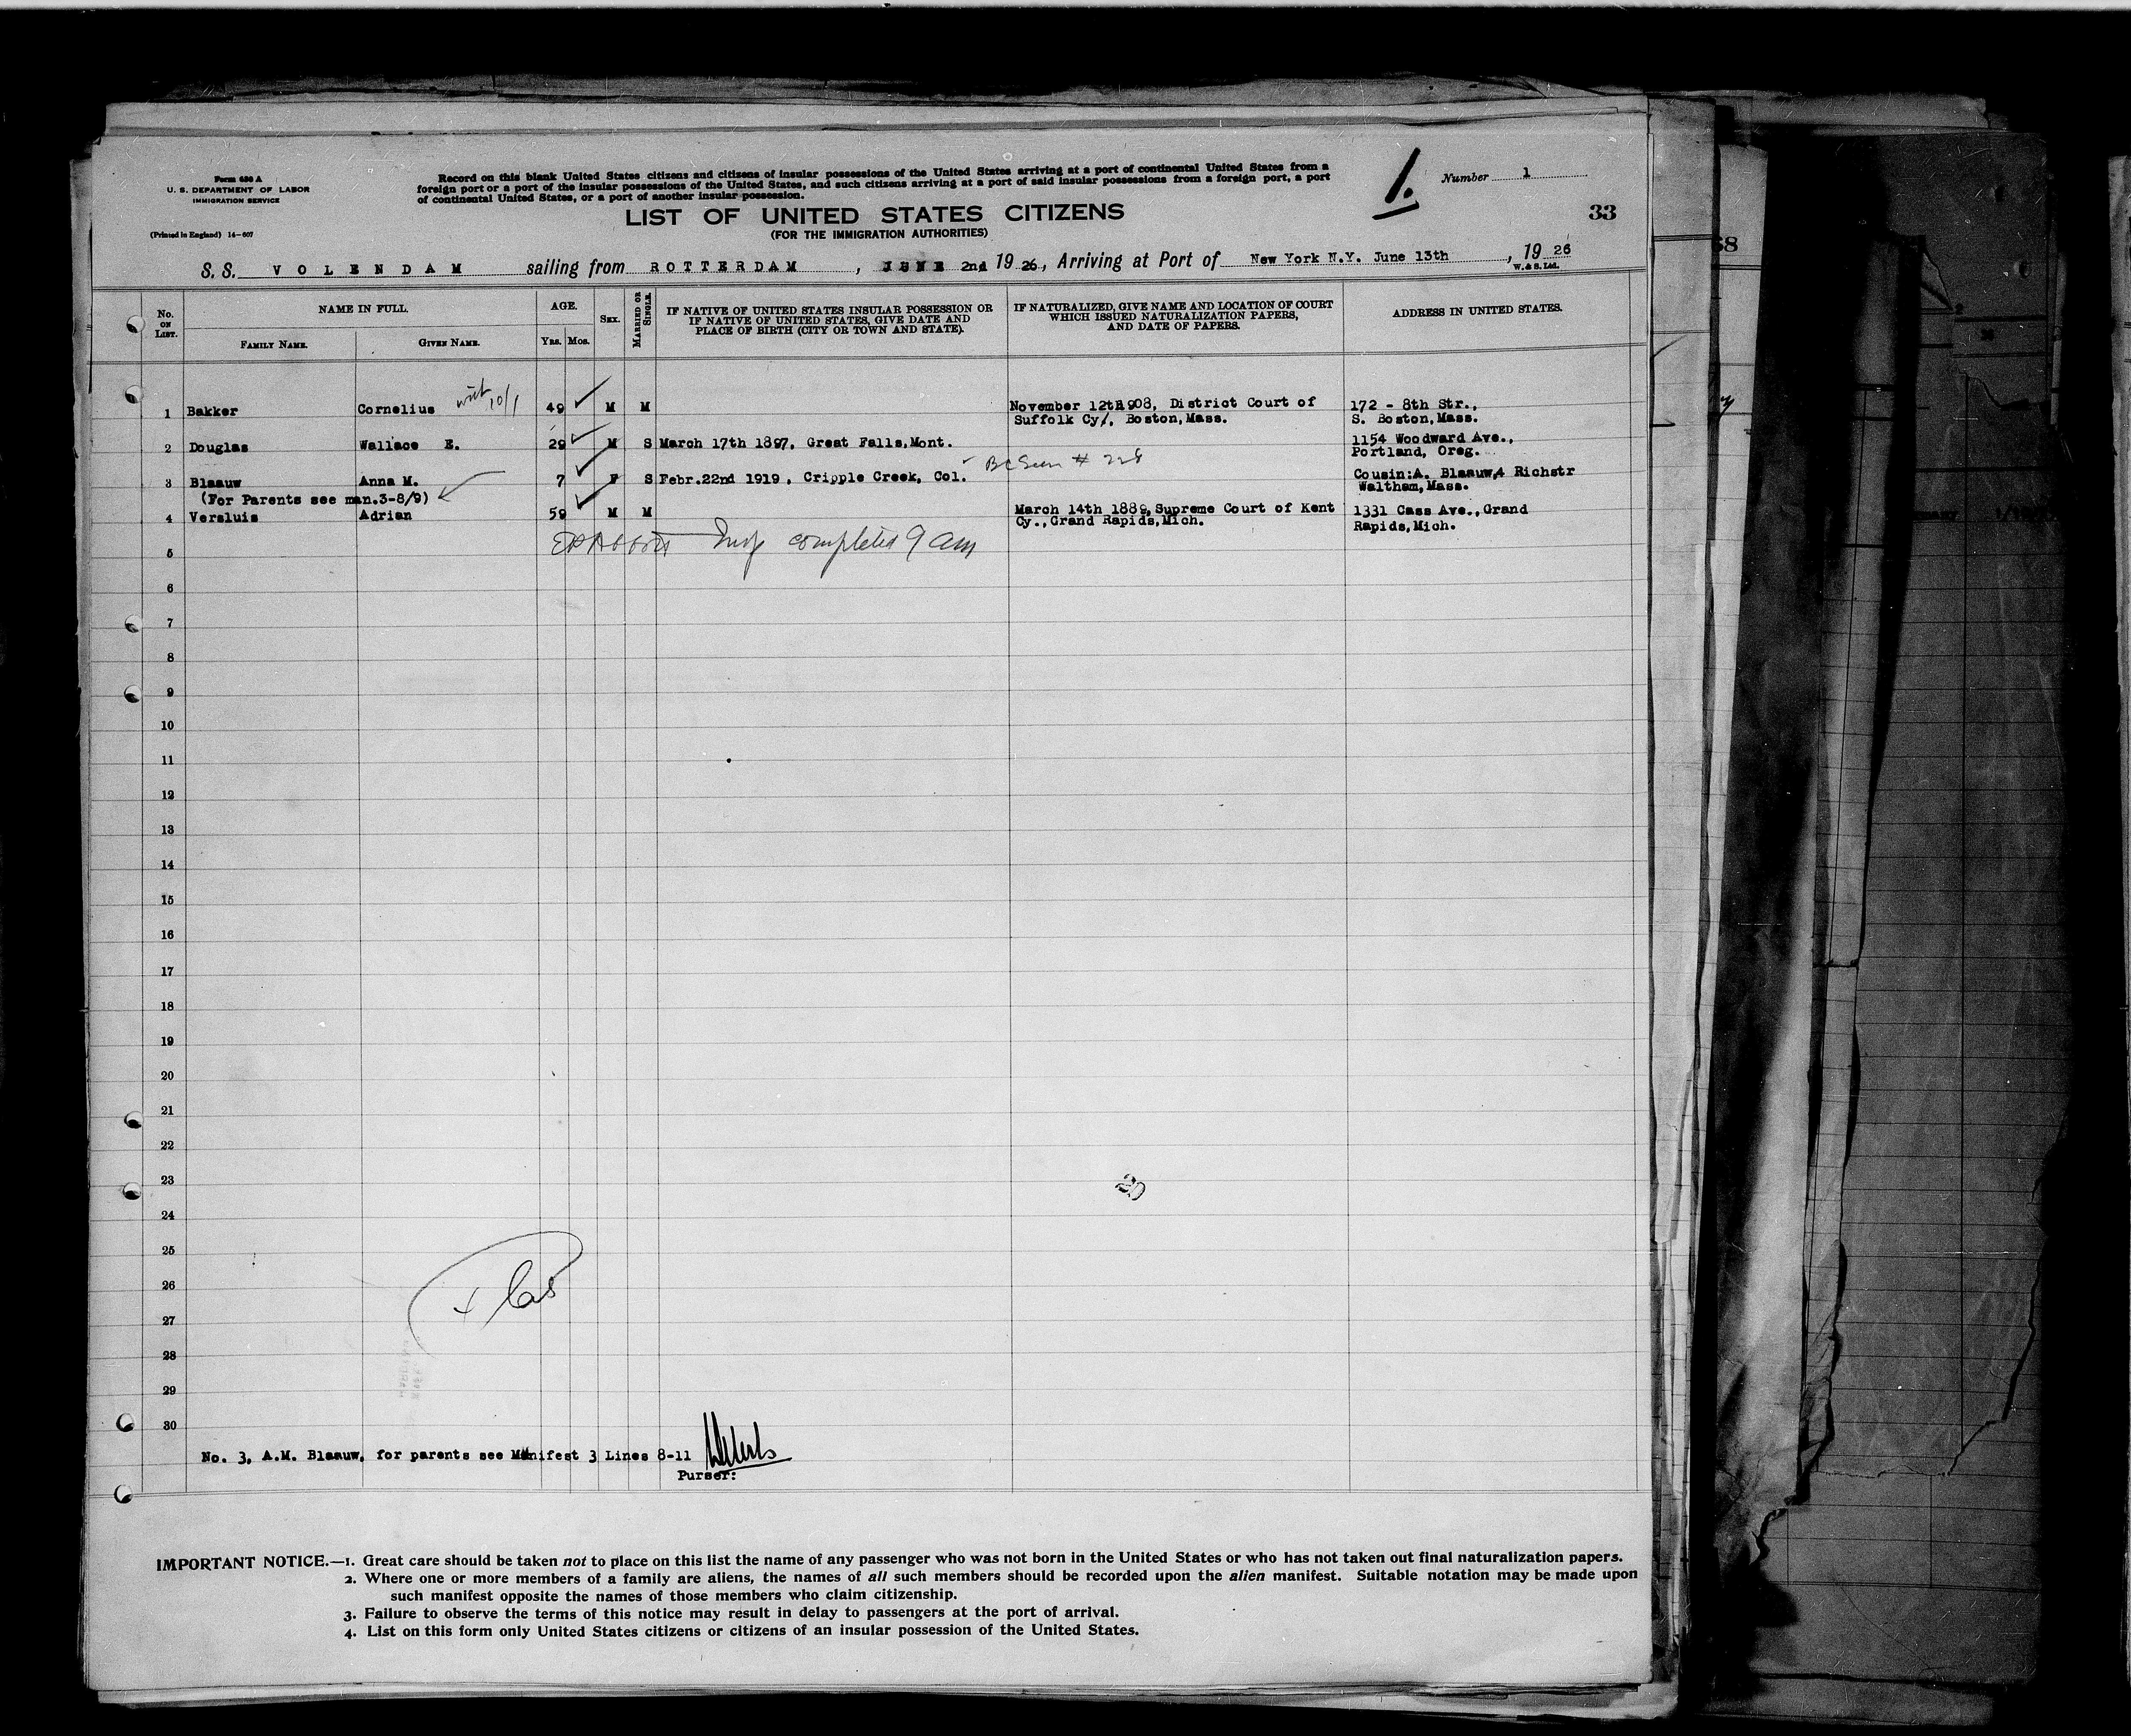 Form 630 A
U. S. DEPARTMENT OF LABOR
IMMIGRATION SERVICE
(Printed in England) 14—607
Record on this blank United States citizens and citizens of insular possessions of the United States arriving at a port of continental United States from a
foreign port or a port of the insular possessions of the United States, and such citizens arriving at a port of said insular possessions from a foreign port, a port
of continental United States, or a port of another insular possession.
1.
Number 1
LIST OF UNITED STATES CITIZENS
33
(FOR THE IMMIGRATION AUTHORITIES)
S.S. VOLENDAM sailing from ROTTERDAM, JUNE 2nd 1926, Arriving at Port of New York N.Y. June 13th, 1926
W. & S. Ltd.
No. ON LIST.
NAME IN FULL.
FAMILY NAME.
GIVEN NAME.
AGE.
Yrs. Mos.
SEX.
MARRIED OR SINGLE.
IF NATIVE OF UNITED STATES INSULAR POSSESSION OR
IF NATIVE OF UNITED STATES, GIVE DATE AND
PLACE OF BIRTH (CITY OR TOWN AND STATE).
IF NATURALIZED, GIVE NAME AND LOCATION OF COURT
WHICH ISSUED NATURALIZATION PAPERS,
AND DATE OF PAPERS.
ADDRESS IN UNITED STATES.
1 Bakker Cornelius 10/1 49 M M November 12th1908, District Court of 172 - 8th Str.,
Suffolk Cy/, Boston,Mass. S. Boston,Mass.
2 Douglas Wallace E. 29 M S March 17th 1897, Great Falls,Mont. 1154 Woodward Ave.,
Portland, Oreg.
3 Blaauw Anna M. 7 F S Febr.22nd 1919, Cripple Creek, Col. BC Seen # 228 Cousin:A. Blaauw,4 Richstr
(For Parents see man.3-8/9) Waltham,Mass.
4 Versluis Adrian 59 M M March 14th 1889,Supreme Court of Kent 1331 Cass Ave.,Grand
Cy.,Grand Rapids,Mich. Rapids,Mich.
Insp completed 9 am
5
6
7
8
9
10
11
12
13
14
15
16
17
18
19
20
21
22
23
24
25
26
27
28
29
30
No. 3, A.M. Blaauw, for parents see Manifest 3 Lines 8-11
Purser:
IMPORTANT NOTICE.—1. Great care should be taken not to place on this list the name of any passenger who was not born in the United States or who has not taken out final naturalization papers.
2. Where one or more members of a family are aliens, the names of all such members should be recorded upon the alien manifest. Suitable notation may be made upon
such manifest opposite the names of those members who claim citizenship.
3. Failure to observe the terms of this notice may result in delay to passengers at the port of arrival.
4. List on this form only United States citizens or citizens of an insular possession of the United States.